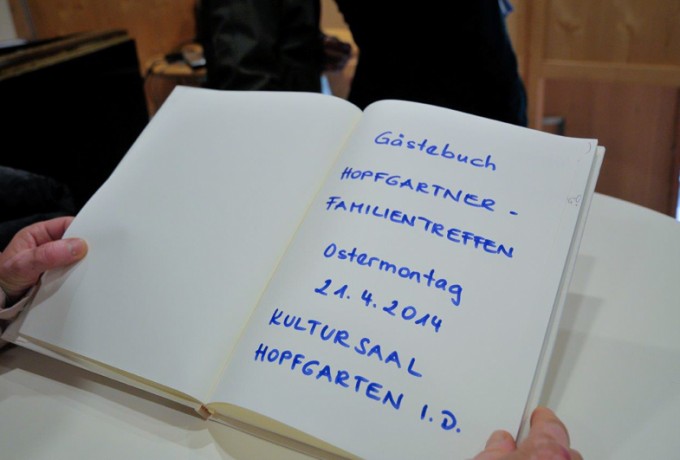 Gästebuch
HOPFGARTNER -
FAMILIENTREFFEN
Ostermontag
21.4.2014
KULTURSAAL
HOPFGARTEN I.D.